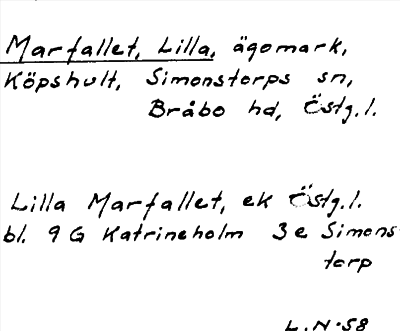 Marfallet, Lilla, ägomark,
Köpshult, Simonstorps sn,
Bråbo hd, Östg.l.
Lilla Marfallet, ek Östg.l.
bl. 9G Katrineholm 3e Simons-
torp
L.N.58